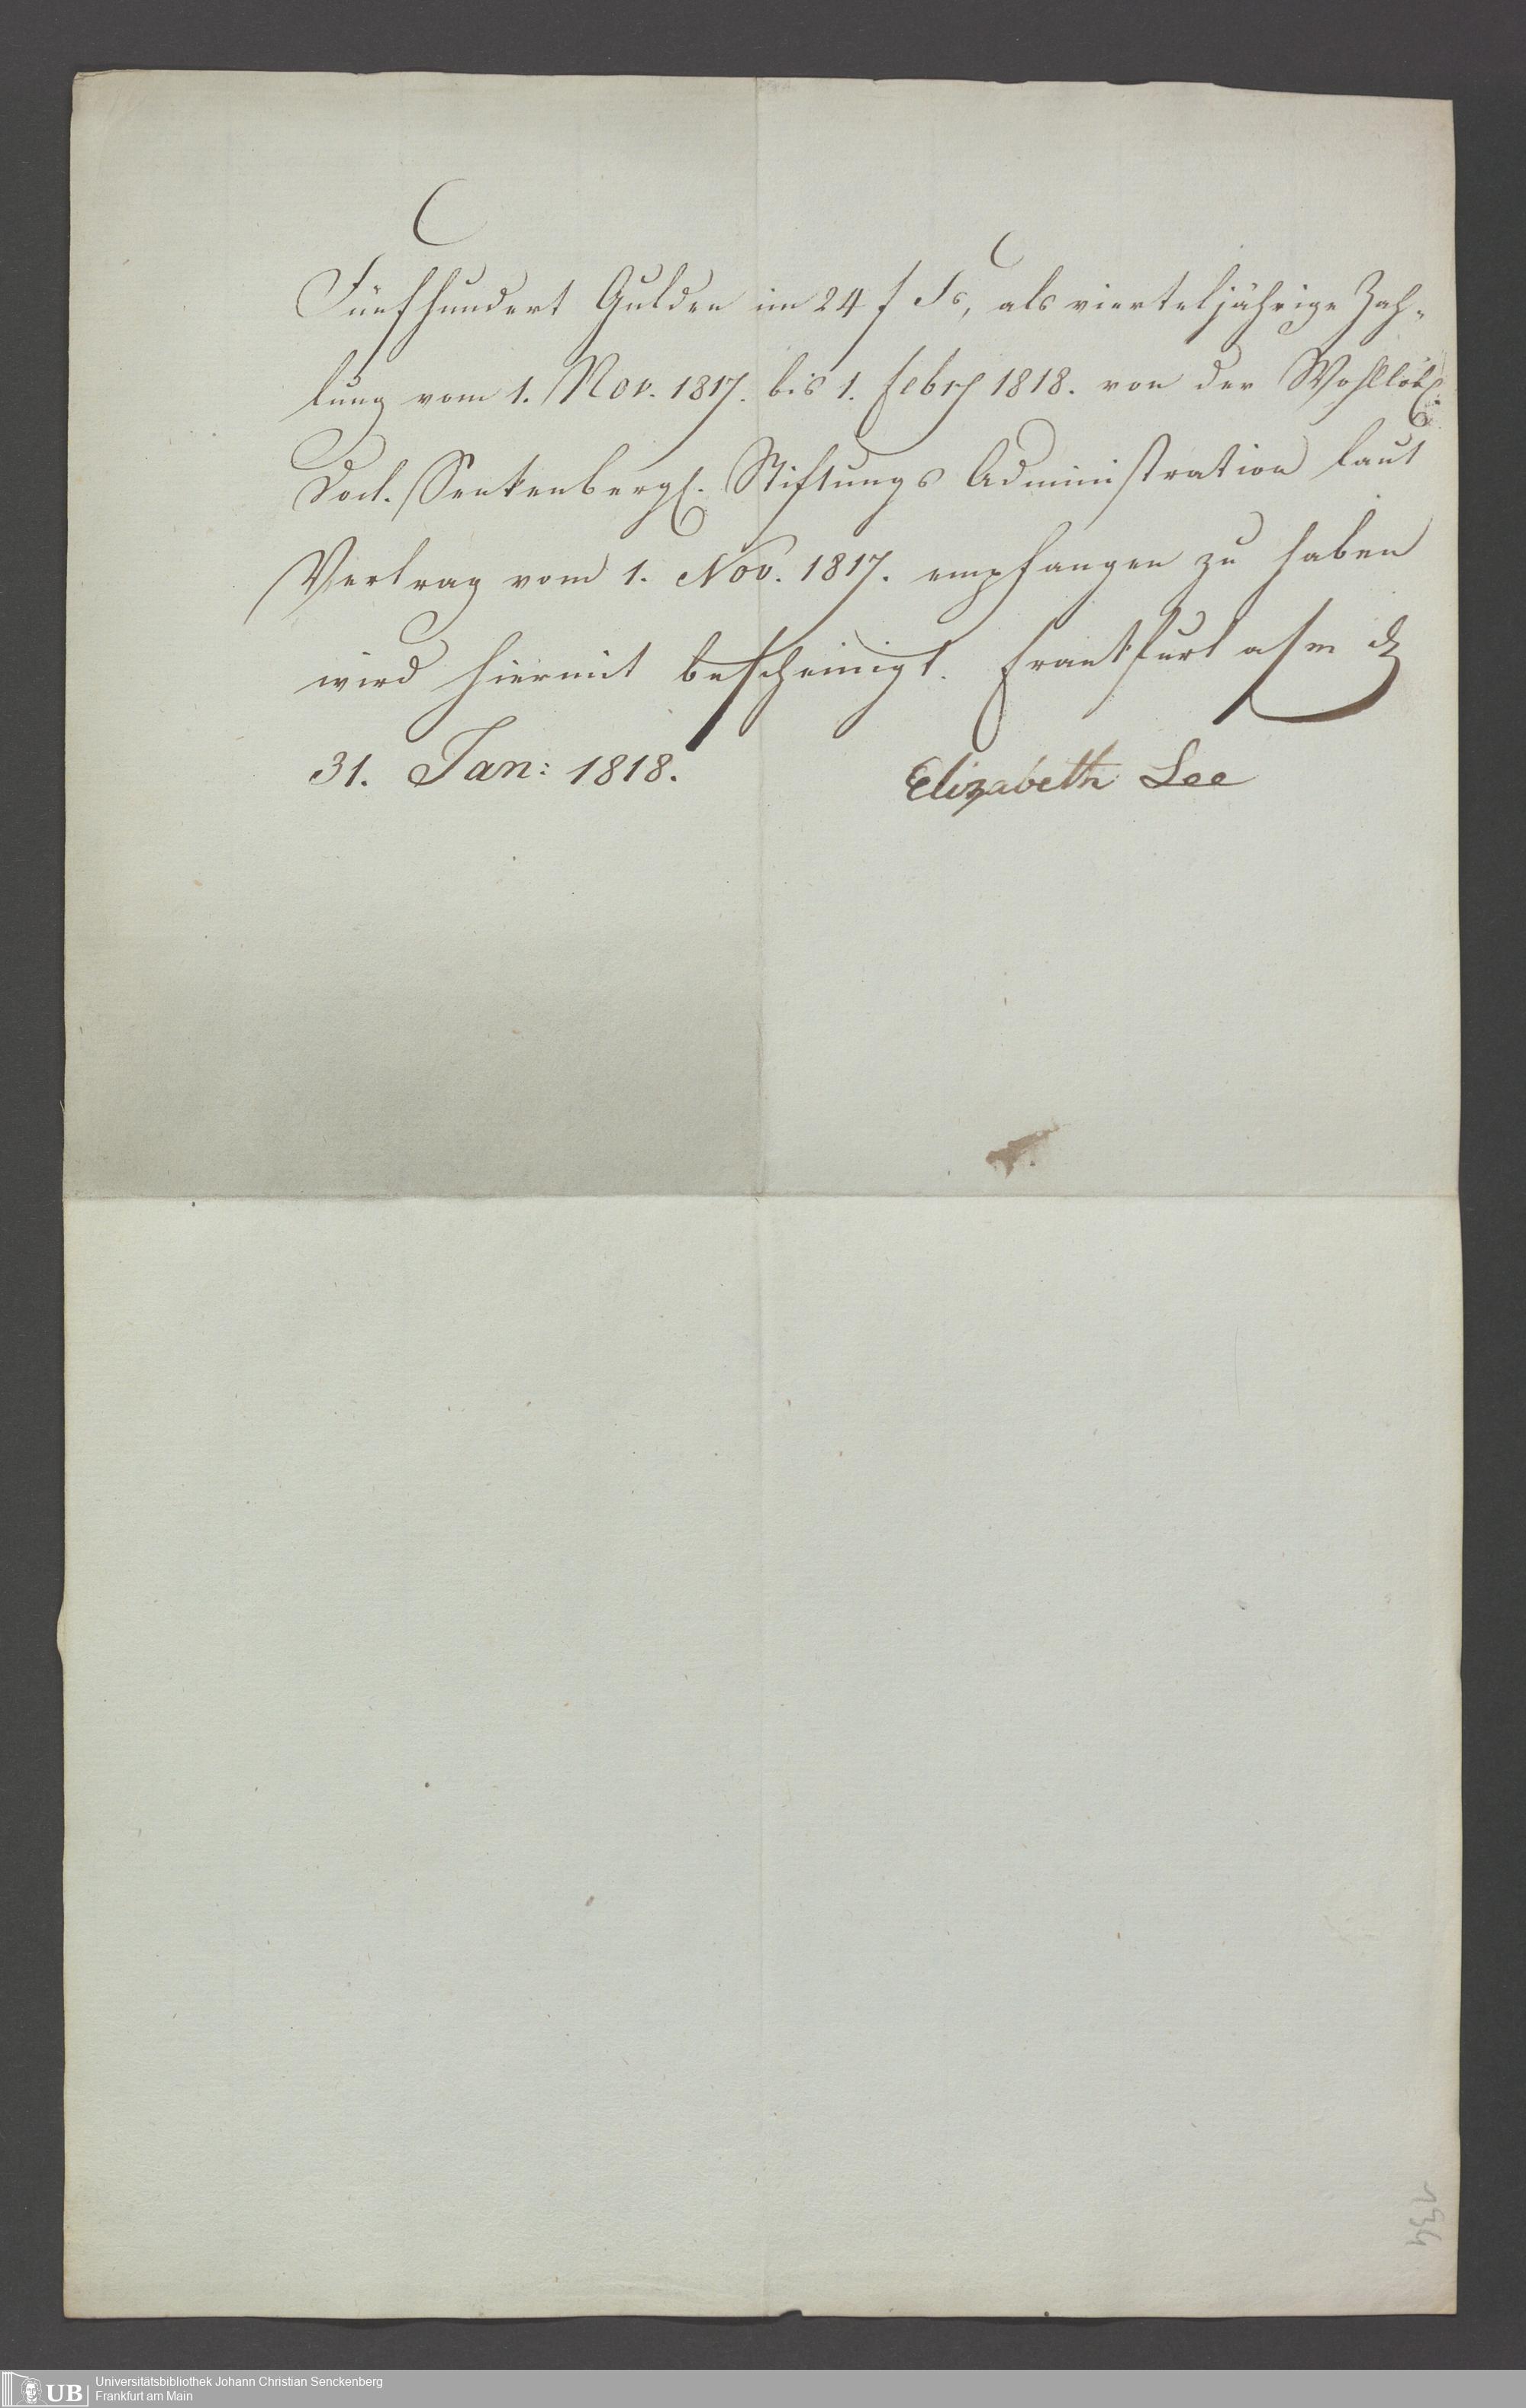 Fünfhundert Gulden im 24 f Fs, als vierteljährige Zah-
lung vom 1. Nov. 1817. bis 1. Febry 1818. von der Wohllöbl.
Doct. Senkenbergl. Stiftungs Administration laut
Vertrag vom 1. Nov. 1817. empfangen zu haben
wird hiermit bescheinigt. Frankfurt a/m d
31. Jan: 1818.
Elizabeth Lee
UB
Universitätsbibliothek Johann Christian Senckenberg
Frankfurt am Main